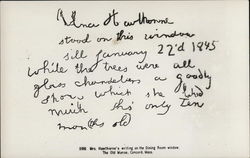 Una Hawthorne
stood on this window
sill January 22d 1845
while the trees were all
glass chandeliers a goodly
show which she liked
much tho' only ten
months old
Mrs. Hawthorne's writing on the Dining Room window
The Old Manse, Concord, Mass.